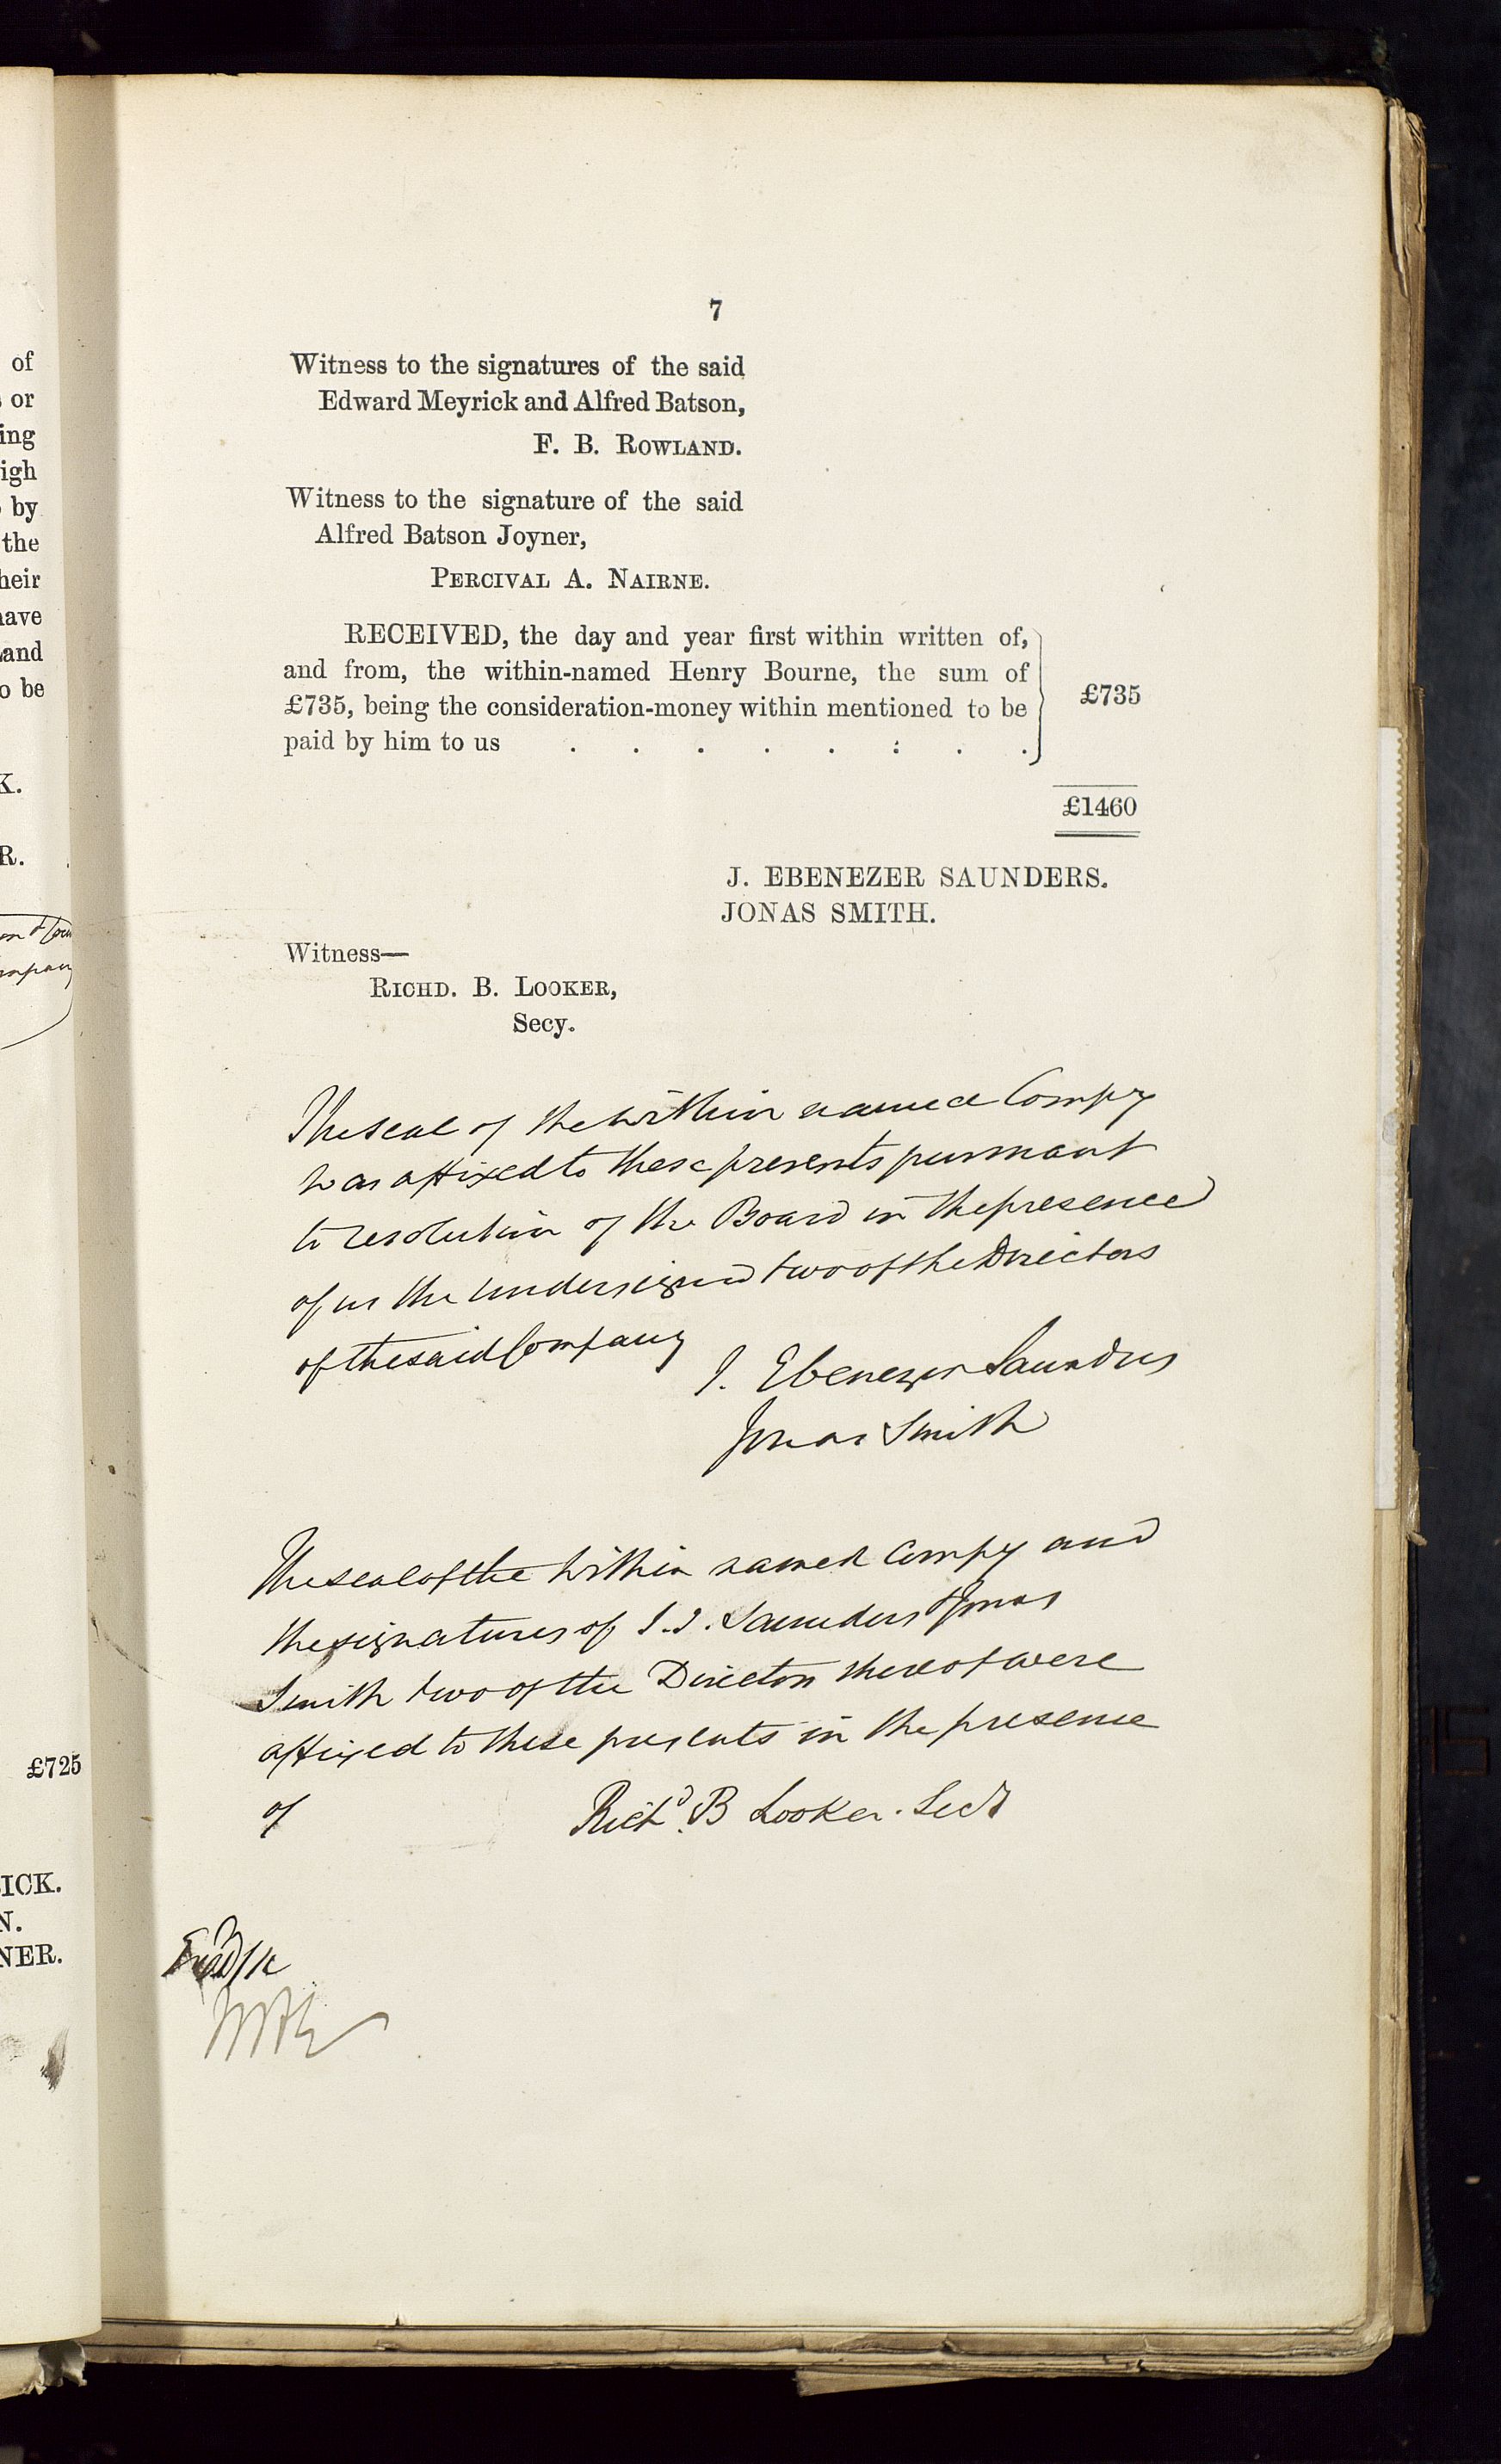 7
Witness to the signatures of the said
Edward Meyrick and Alfred Batson,
F. B. ROWLAND.
Witness to the signature of the said
Alfred Batson Joyner,
PERCIVAL A. NAIRNE.
RECEIVED, the day and year first within written of,
and from, the within-named Henry Bourne, the sum of
£735, being the consideration-money within mentioned to be
paid by him to us . . . . . : . .
£735
£1460
J. EBENEZER SAUNDERS.
JONAS SMITH.
Witness—
RICHD. B. LOOKER,
Secy.
The seal of the within named Compy
was affixed to these presents pursuant
to resolution of the Board in the presence
of us the undersigned two of the Directors
of the said Company
J. Ebenezer Saunders
Jonas Smith
The seal of the within named Compy and
the signatures of J. J. Saunders & Jonas
Smith two of the Directors thereof were
affixed to these presents in the presence
of
Richd. B Looker. Secy
of
or
ing
igh
by
the
heir
have
and
o be
K.
R.
£725
ICK.
N.
NER.